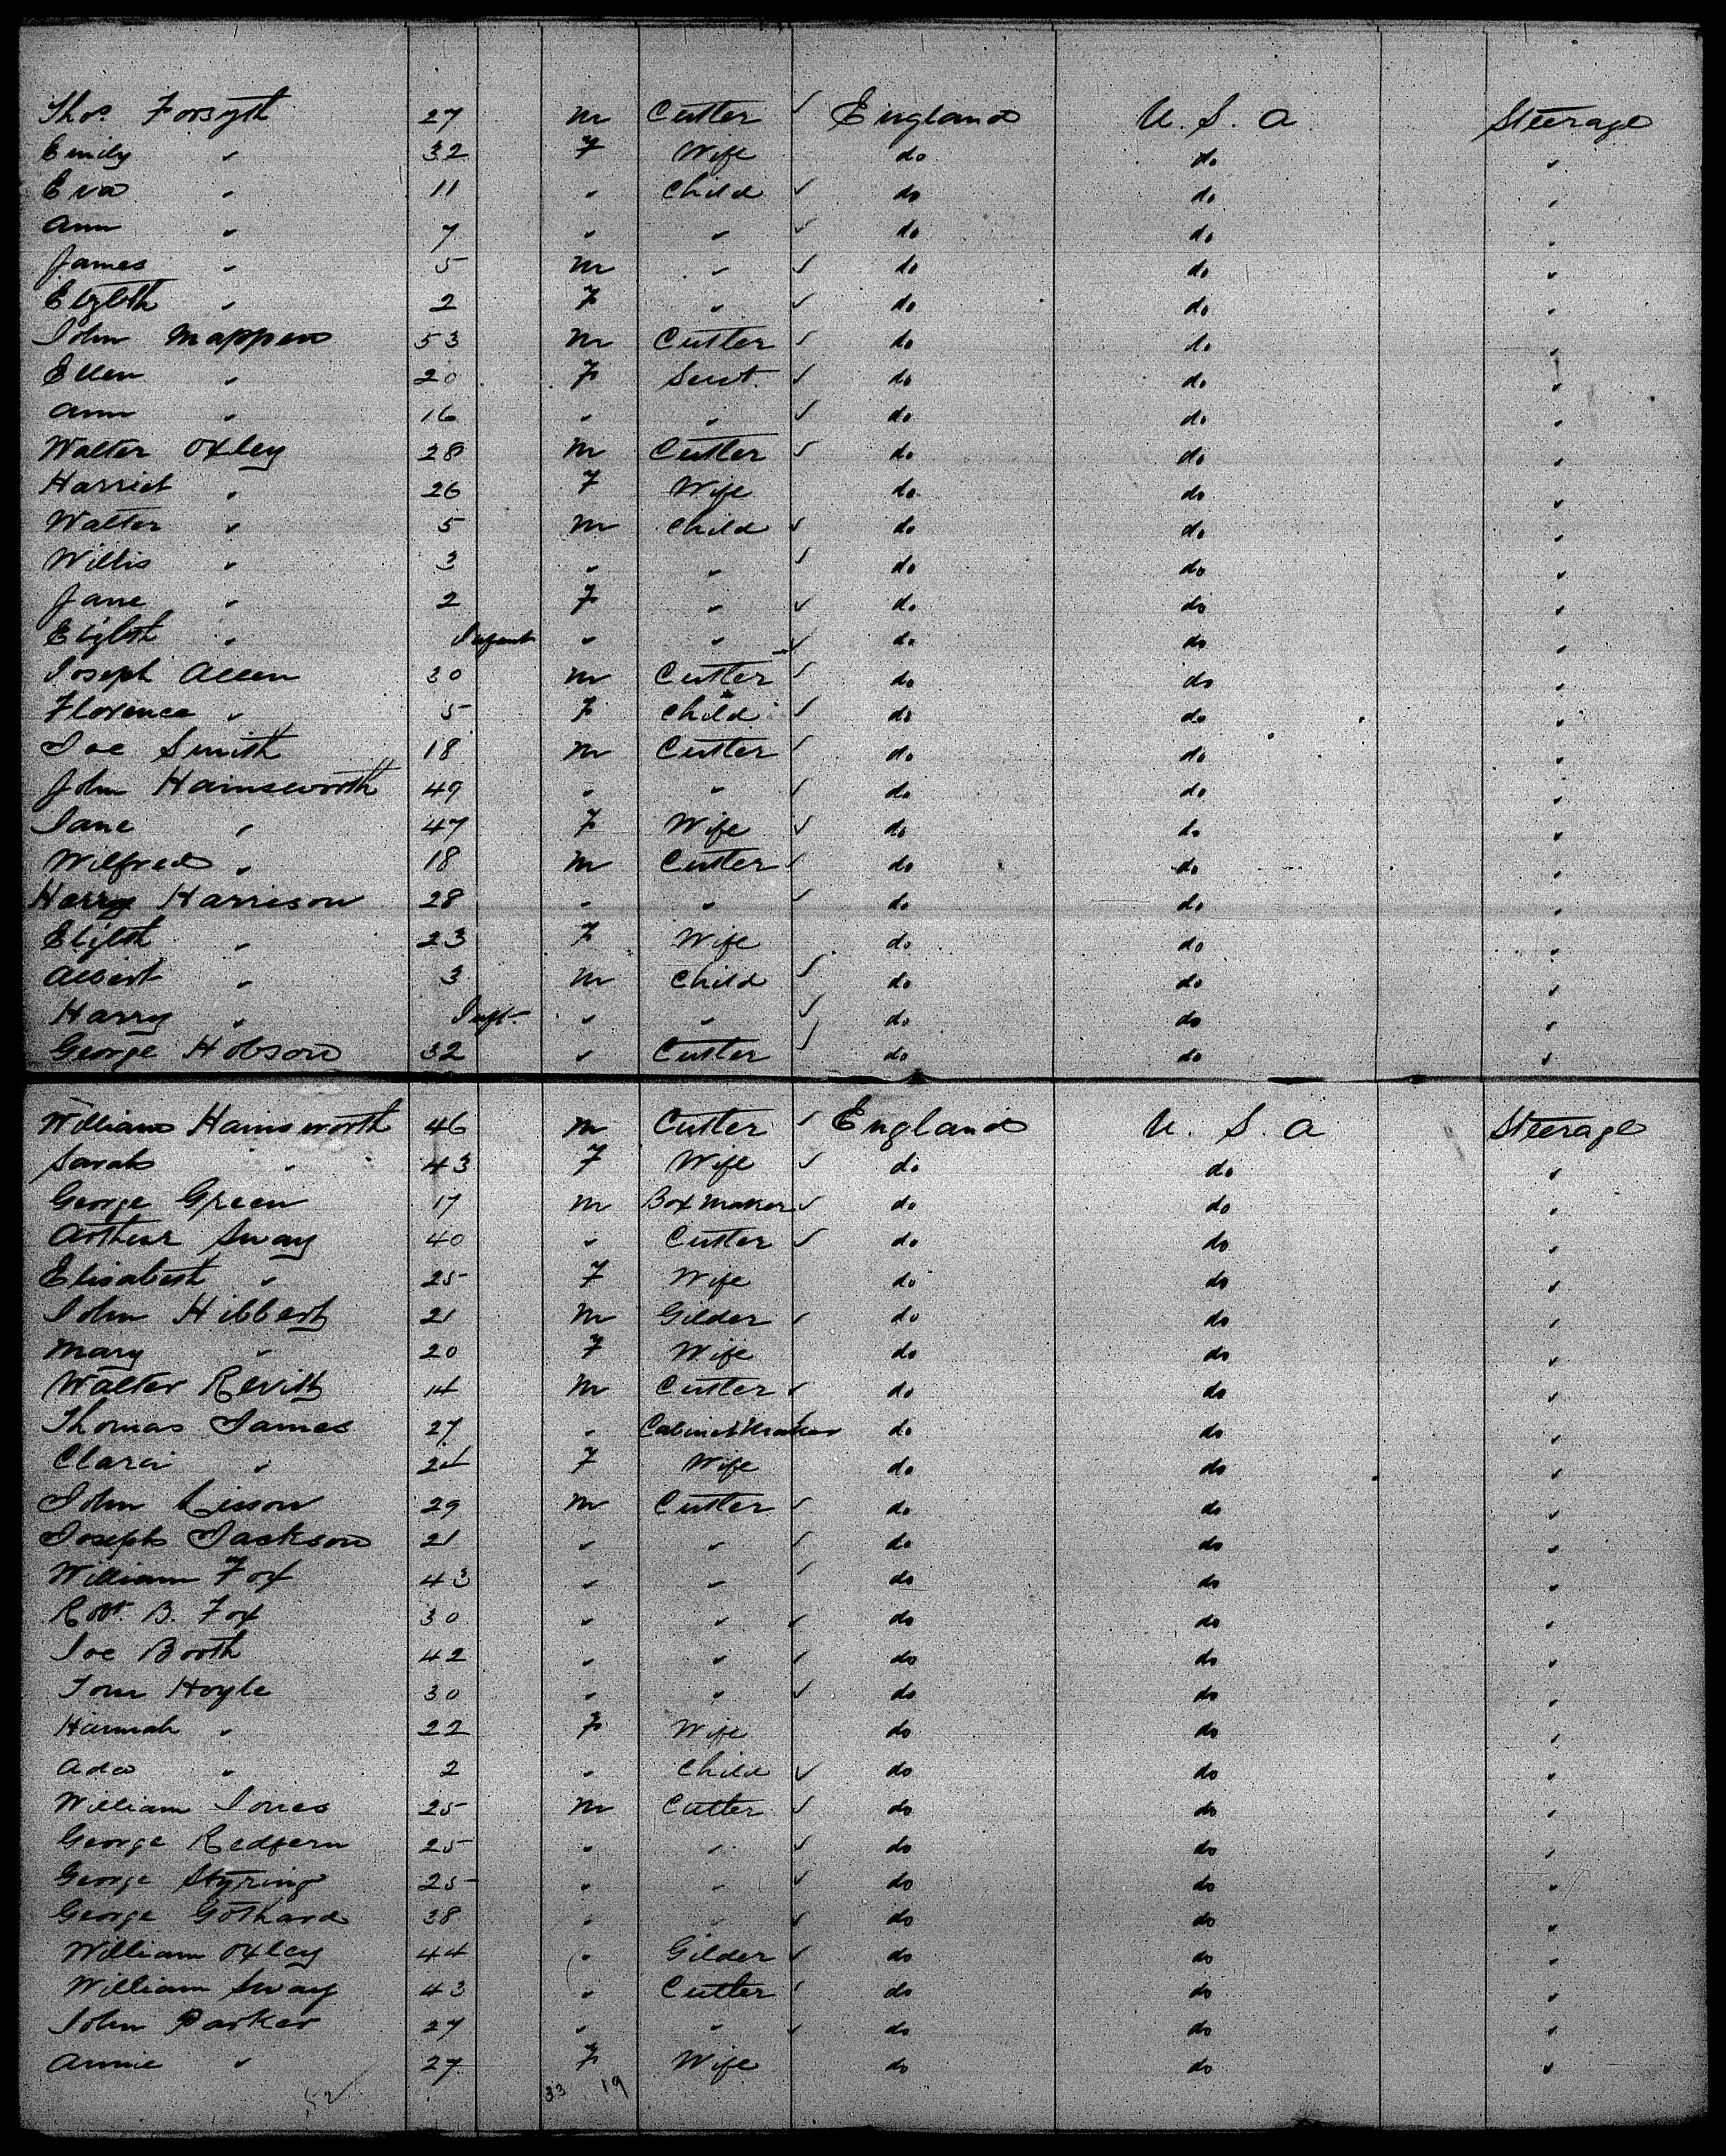 Thos. Forsyth 27 m Cutler ✓ England U. S. A Steerage
Emily " 32 F Wife do do "
Eva " 11 " Child ✓ do do "
Ann " 7 " " ✓ do do "
James " 5 m " ✓ do do "
Elizbth " 2 F " ✓ do do "
John Mappen 53 m Cutler ✓ do do "
Ellen " 20 F Servt. ✓ do do "
Ann " 16 " " ✓ do do "
Walter Oxley 28 m Cutler ✓ do do "
Harriet " 26 F Wife do do "
Walter " 5 m Child ✓ do do "
Willis " 3 " " ✓ do do "
Jane " 2 F " ✓ do do "
Elizbth " Infant " " ✓ do do "
Joseph Allen 30 m Cutler ✓ do do "
Florence " 5 F Child ✓ do do "
Joe Smith 18 m Cutler ✓ do do "
John Hainsworth 49 " " ✓ do do "
Jane " 47 F Wife ✓ do do "
Wilfred " 18 m Cutler ✓ do do "
Harry Harrison 28 " " ✓ do do "
Elizbth " 23 F Wife do do "
Albert " 3 m Child ✓ do do "
Harry " Inft. " " ✓ do do "
George Hobson 32 " Cutler ✓ do do "
William Hainsworth 46 m Cutler ✓ England U. S. A Steerage
Sarah " 43 F Wife ✓ do do "
George Green 17 m Box maker ✓ do do "
Arthur Sway 40 " Cutler ✓ do do "
Elisabeth " 25 F Wife do do "
John Hibbert 21 m Gilder ✓ do do "
Mary " 20 F Wife do do "
Walter Revitt 14 m Cutler ✓ do do "
Thomas James 27 " Cabinet Maker ✓ do do "
Clara " 24 F Wife do do "
John 29 m Cutler ✓ do do "
Joseph Jackson 21 " " ✓ do do "
William Fox 43 " " ✓ do do "
Robt. B. Fox 30 " " ✓ do do "
Joe Booth 42 " " ✓ do do "
Tom Hoyle 30 " " ✓ do do "
Hannah " 22 F Wife do do "
Ada " 2 " Child ✓ do do "
William Jones 25 m Cutler ✓ do do "
George Redfern 25 " " ✓ do do "
George Styring 25 " " ✓ do do "
George Gothard 38 " " ✓ do do "
William Oxley 44 " Gilder ✓ do do "
William Sway 43 " Cutler ✓ do do "
John Parker 27 " " ✓ do do "
Annie " 27 F Wife do do "
52 ✓ 33 19